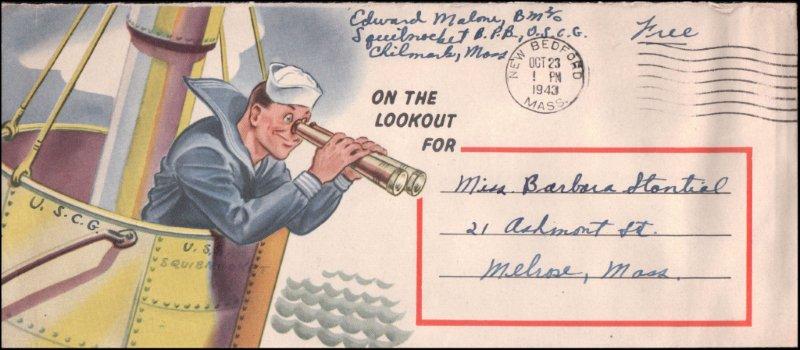 Edward Malone, BM2/c
Squibnocket B.P.B., U.S.C.G.
Chilmark, Mass
Free
NEW BEDFORD
OCT 23
1 PM
1943
MASS.
ON THE
LOOKOUT
FOR
Miss Barbara Stantial
21 Ashmont St.
Melrose, Mass.
U.S.C.G.
U.S.
SQUIBNOCKET